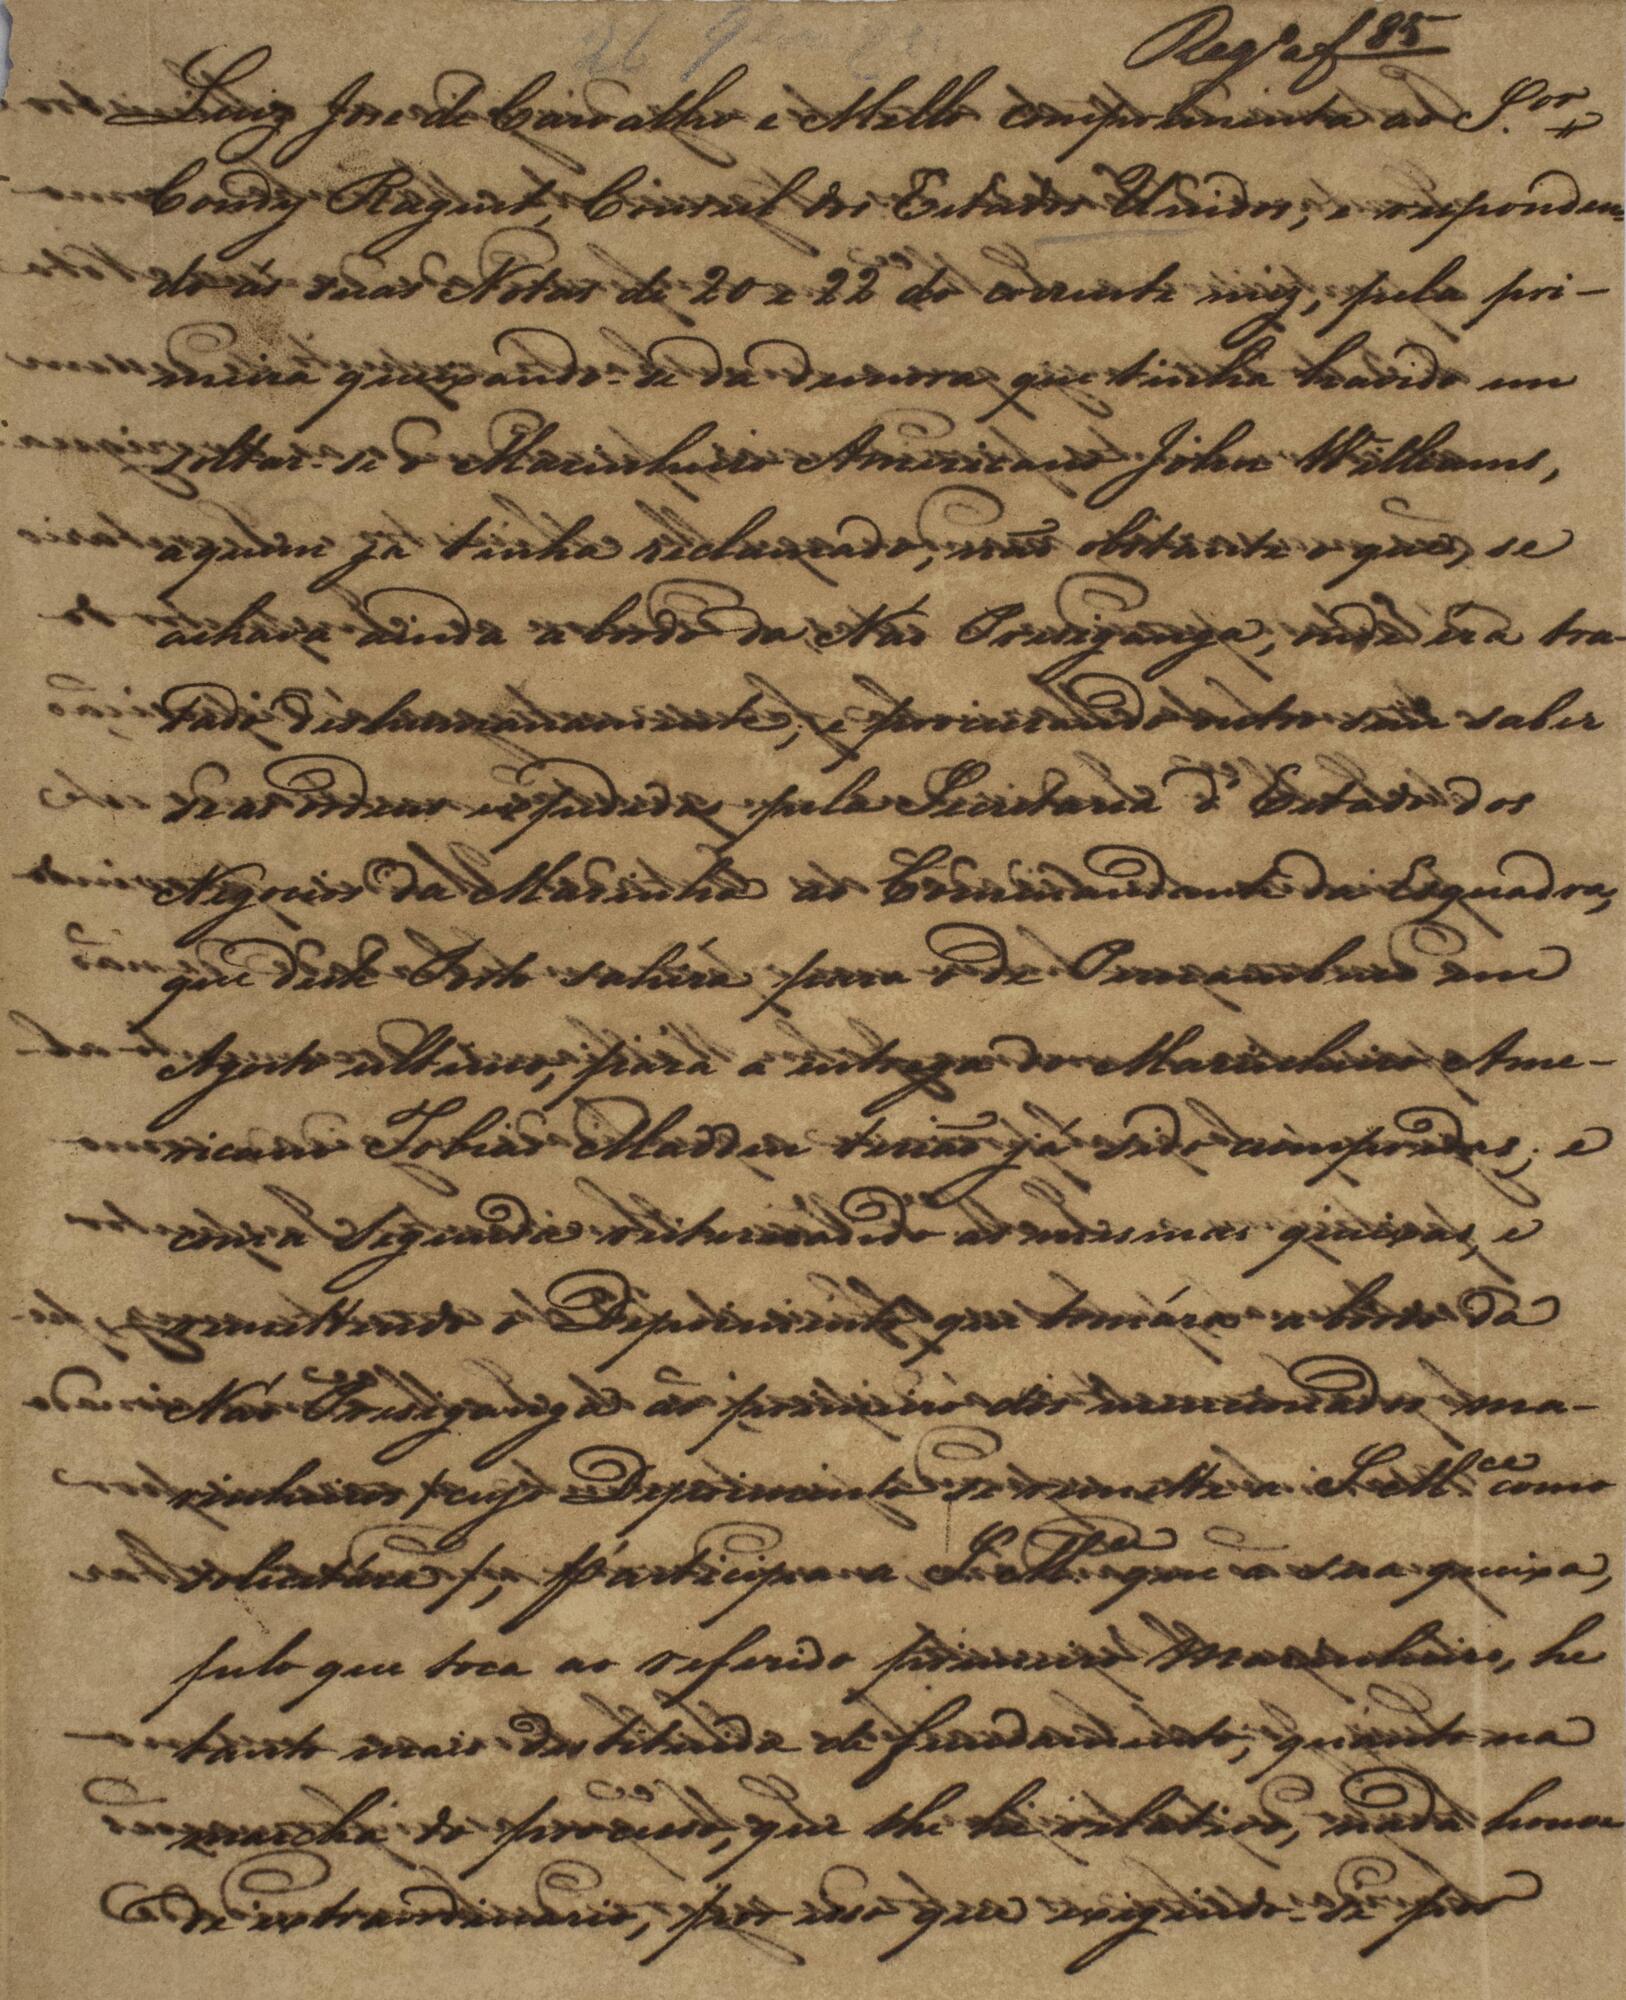 Reg.º a f 85
Luiz José de Carvalho e Mello comprimenta ao S.or
Condy Raguet, Consul dos Estados Unidos, e responden-
do ás suas Notas de 20 e 22 do corrente mez, pela pri-
meira queixando-se da demora que tinha havido em
soltar-se o Marinheiro Americano John Williams,
a quem ja tinha reclamado, não obstante o que, se
achava ainda a bordo da Náo Presiganga, onde éra tra-
tado deshumanamente, e procurando outro sim saber
se as ordens expedidas pela Secretaria d'Estado dos
Negocios da Marinha ao Commandante da Esquadra,
que deste Porto sahira para o de Pernambuco em
Agosto ultimo, para a entrega do Marinheiro Ame-
ricano Tobias Madden terião já sido compridas; e
com a segunda reiterando as mesmas queixas, e
remettendo o Depoimento que tomára a bordo da
Náo Presiganga ao primeiro dos mencionados ma-
rinheiros /cujo Depoimento se remette a S. M.ce como
solicitára/, participa a S. M.ce que a sua queixa,
pelo que toca ao referido primeiro Marinheiro, he
tanto mais destituida de fundamento, quanto na
marcha do processo, que lhe he relativo, nada houve
de extraordinario, por isso que exigindo-se por